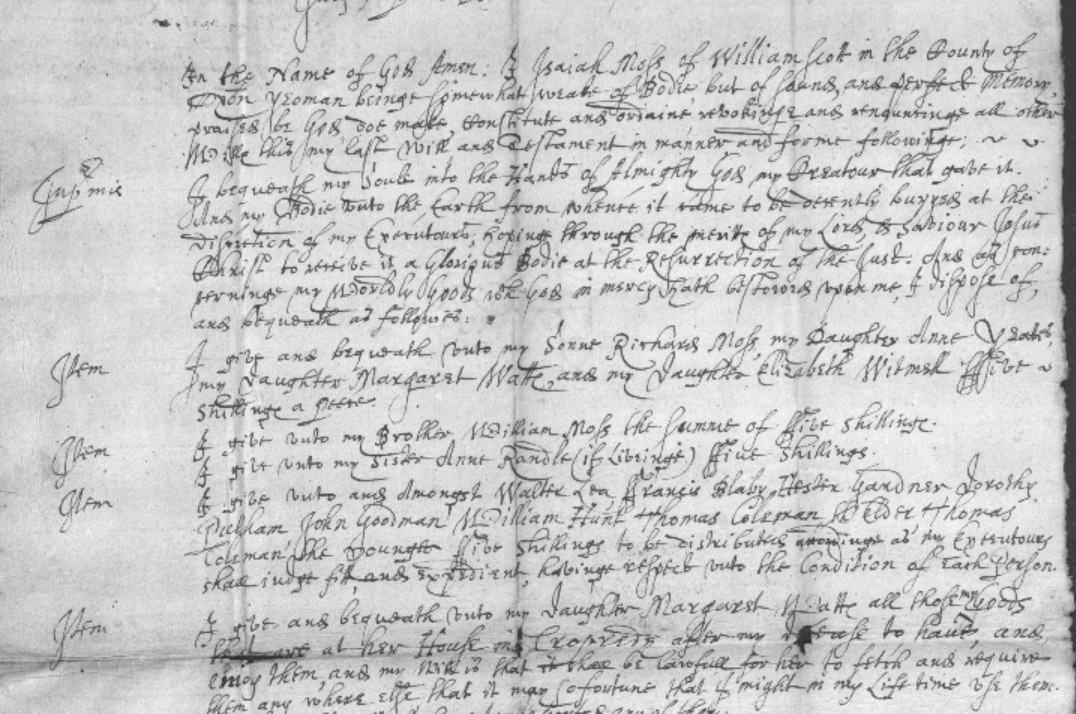 In the Name of God Amen: I Isaiah Moss of Williamscott in the County of
Oxon Yeoman beinge somewhat weake of Bodie but of sound and perfect Memory
praised be God doe make, Constitute and ordaine revokinge and renguntinge all other
Wills this my last Will and Testament in manner and forme followinge;
Inp mis
I bequeath my Soule into the Hands of Almighty God my Creatour that gave it.
And my Bodie vnto the Earth from whence it came to be decently buryed at the
discretion of my Executours, hopinge through the merits of my Lord, & Saviour Jesus
Christ to receive it a Glorious Bodie at the Resurrection of the Just. And as con-
cerninge my Worldly Goods wch God in mercy hath bestowed vpon me, I dispose of,
and bequeath as followes:
Item I give and bequeath vnto my Sonne Richard Moss, my Daughter Anne Yeates,
my Daughter Margaret Watts, and my Daughter Elizabeth Witmell ffive
Shillings a peece.
Item I give vnto my Brother William Moss the summe of ffive shillings.
I give vnto my Sister Anne Randle (if Livinge) ffive Shillings.
Item I give vnto and Amongst Walter Lea ffrancis Blaby, Hester Gardner Dorothy
John Goodman William Hunt Thomas Coleman Elder Thomas
Coleman the younger ffive Shillings to be distributed as my Executours
shall judge fitt and Expedient, havinge respect vnto the Condition of Each Person.
Item I give and bequeath vnto my Daughter Margaret Watts all those my Goods
that are at her House in Cropredy after my decease to have, and
enioy them and my Will is that it shall be lawfull for her to fetch and require
them any where else that it may so fortune that I might in my Life time vse them.
any of them